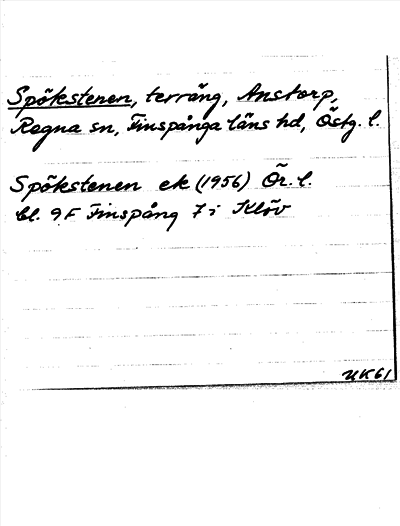 Spökstenen, terräng, Anstorp,
Regna sn, Finspånga läns hd, Östg. l.
Spökstenen ek (1956) Ör. l.
bl. 9F Finspång 7i Klöv
UK61